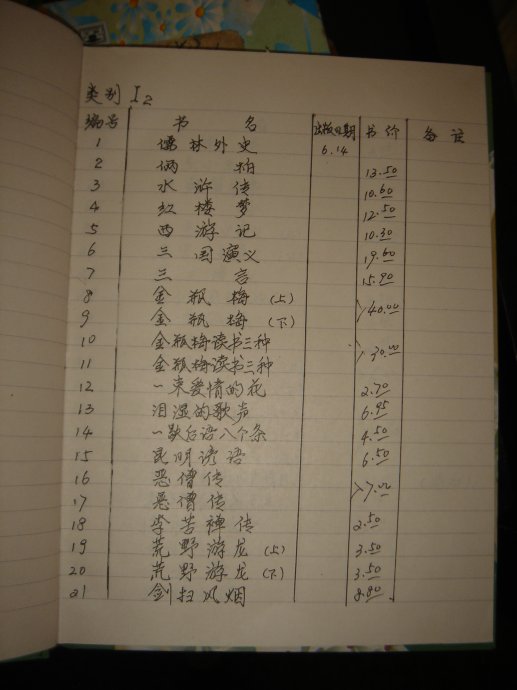 类别 I2
编号 书 名 出版日期 书价 备注
1 儒林外史 6.14
2 俩拍 13.50
3 水浒传 10.60
4 红楼梦 12.50
5 西游记 10.30
6 三国演义 19.60
7 三言 15.90
8 金瓶梅 (上)
9 金瓶梅 (下) 40.00
10 金瓶梅读书三种
11 金瓶梅读书三种 30.00
12 一束爱情的花 2.70
13 泪湿的歌声 6.95
14 一歇后语八个条 4.50
15 昆明谚语 6.50
16 恶僧传
17 恶僧传 7.00
18 李苦禅传 2.50
19 荒野游龙 (上) 3.50
20 荒野游龙 (下) 3.50
21 剑扫风烟 8.80